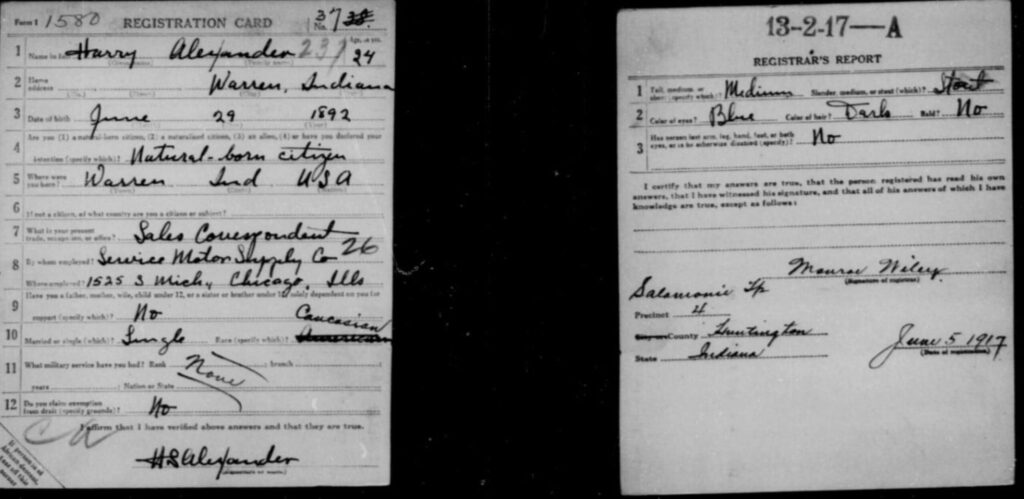 Form 1 1580 REGISTRATION CARD No. 37 38
1 Name in full Harry Alexander 237 Age, in yrs. 24
(Given name) (Family name)
2 Home address Warren, Indiana
(No.) (Street) (City) (State)
3 Date of birth June 29 1892
(Month) (Day) (Year)
Are you (1) a natural-born citizen, (2) a naturalized citizen, (3) an alien, (4) or have you declared your
4 intention (specify which)? Natural-born citizen
5 Where were you born? Warren Ind USA
(Town) (State) (Nation)
6 If not a citizen, of what country are you a citizen or subject?
7 What is your present trade, occupation, or office? Sales Correspondent
26
8 By whom employed? Service Motor Supply Co
Where employed? 1525 S Mich, Chicago, Ills
9 Have you a father, mother, wife, child under 12, or a sister or brother under 12, solely dependent on you for
support (specify which)? No
Caucasian
10 Married or single (which)? Single Race (specify which)? American
11 What military service have you had? Rank None branch
years Nation or State
12 Do you claim exemption from draft (specify grounds)? No
I affirm that I have verified above answers and that they are true.
H S Alexander
(Signature or mark)
If person is of African descent, tear off this corner
13-2-17—A
REGISTRAR'S REPORT
1 Tall, medium, or short (specify which)? Medium Slender, medium, or stout (which)? Stout
2 Color of eyes? Blue Color of hair? Dark Bald? No
3 Has person lost arm, leg, hand, foot, or both eyes, or is he otherwise disabled (specify)? No
I certify that my answers are true, that the person registered has read his own
answers, that I have witnessed his signature, and that all of his answers of which I have
knowledge are true, except as follows:
Monroe Wiley
(Signature of registrar)
Salamonie Tp
Precinct 4
City or County Huntington
State Indiana
June 5 1917
(Date of registration)